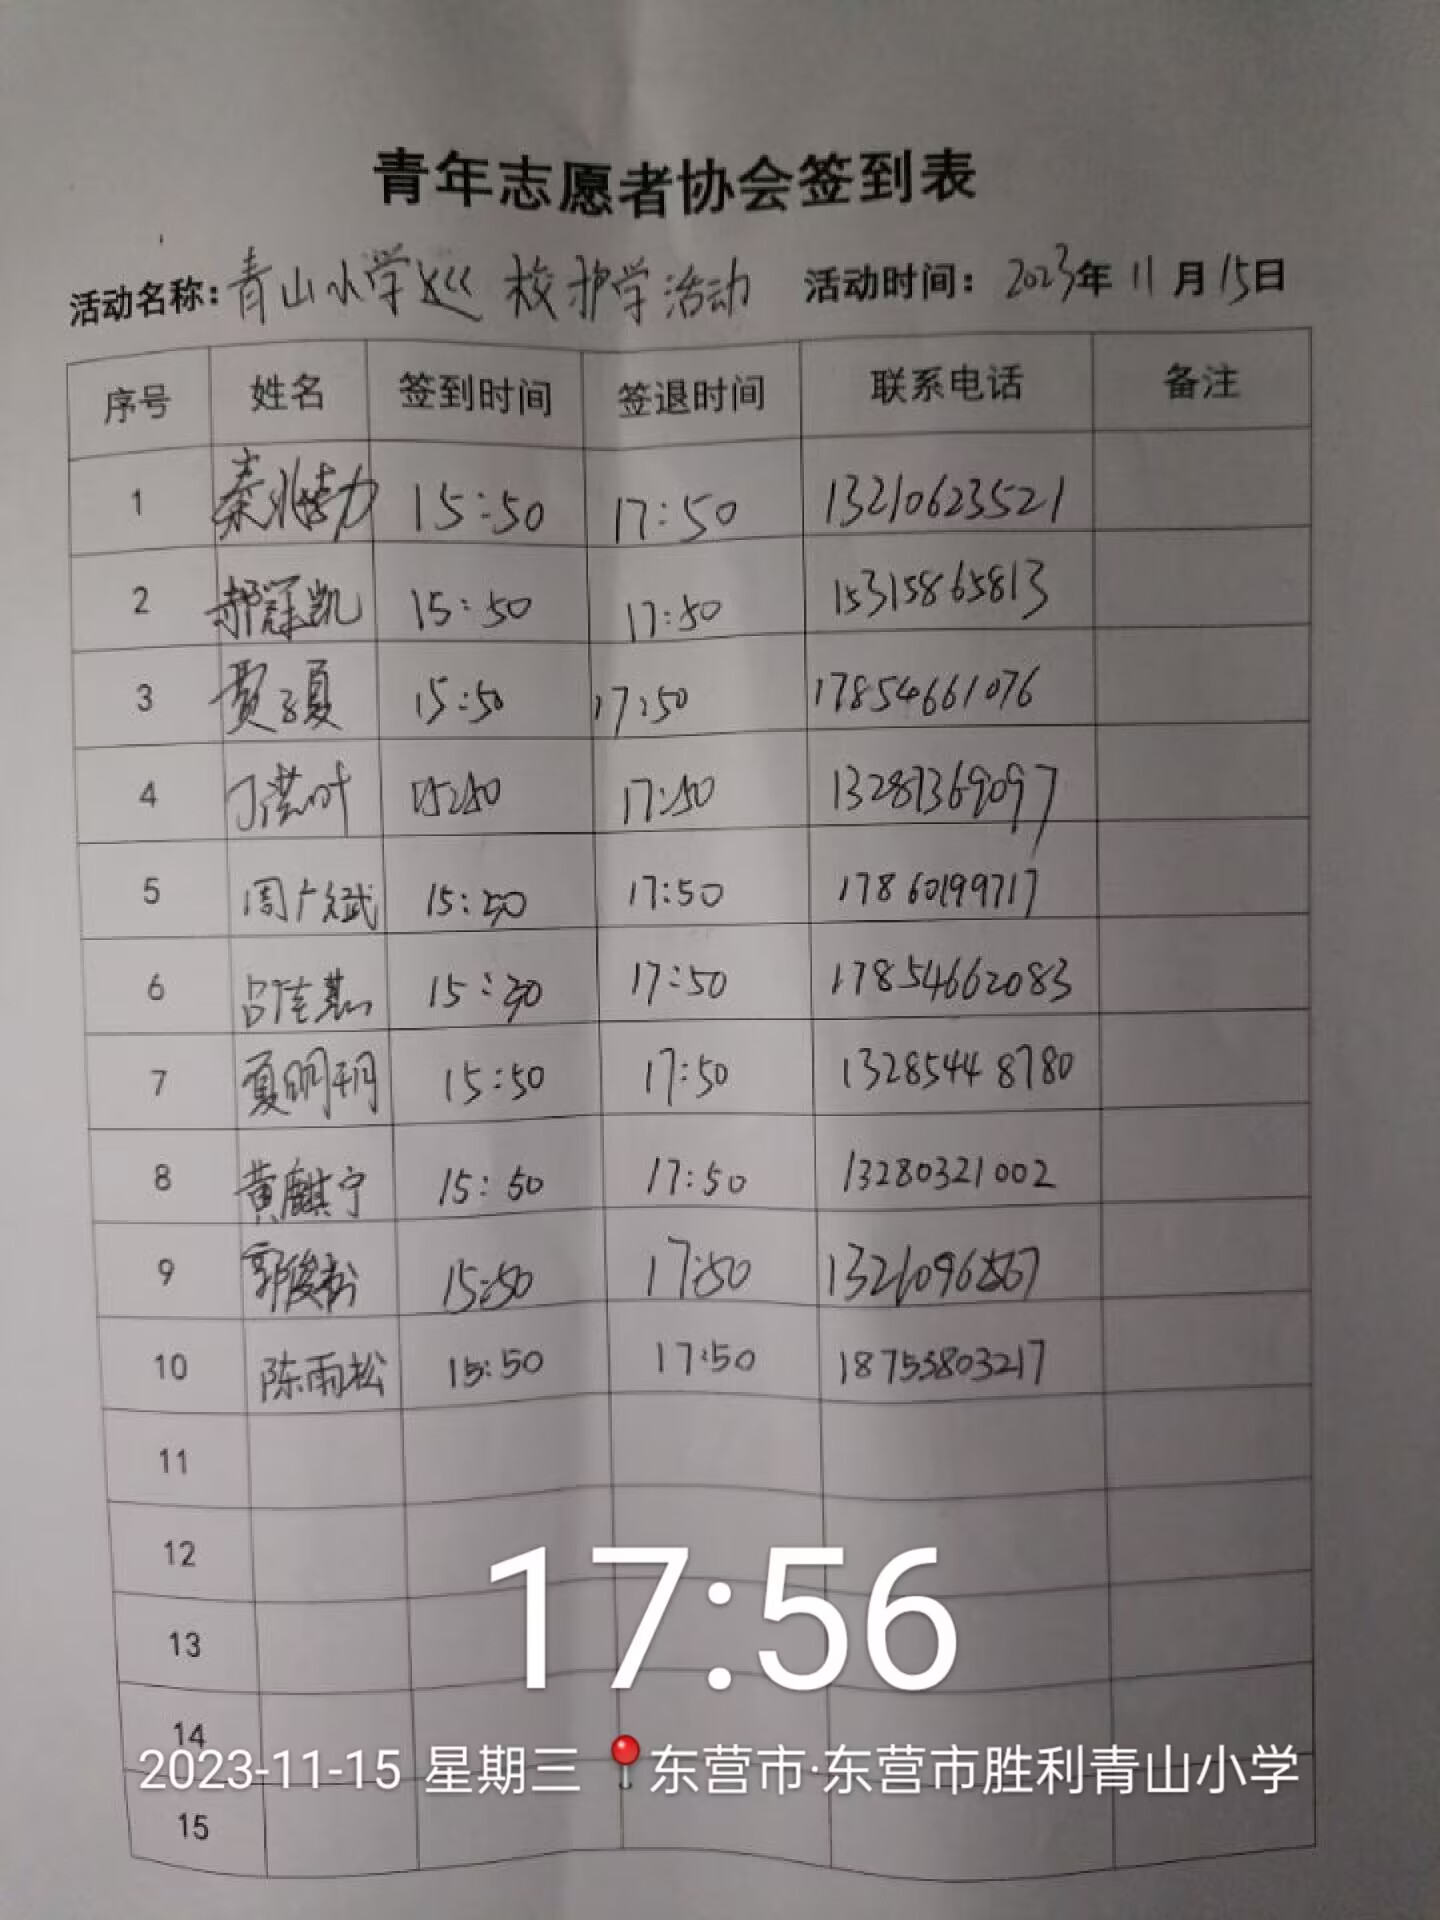 青年志愿者协会签到表
活动名称:青山小学巡校护学活动 活动时间:2023年11月15日
序号 姓名 签到时间 签退时间 联系电话 备注
1 15:50 17:50 13210623521
2 郝冠凯 15:50 17:50 15315865813
3 贾子夏 15:50 17:50 17854661076
4 丁洪叶 15:50 17:50 13287369097
5 周广斌 15:50 17:50 17860199717
6 吕佳慧 15:50 17:50 17854662083
7 夏明玥 15:50 17:50 13285448780
8 黄麒宁 15:50 17:50 13280321002
9 郭俊松 15:50 17:50
10 陈雨松 15:50 17:50 18753803217
11
12
13
14
15
17:56
2023-11-15 星期三 东营市·东营市胜利青山小学